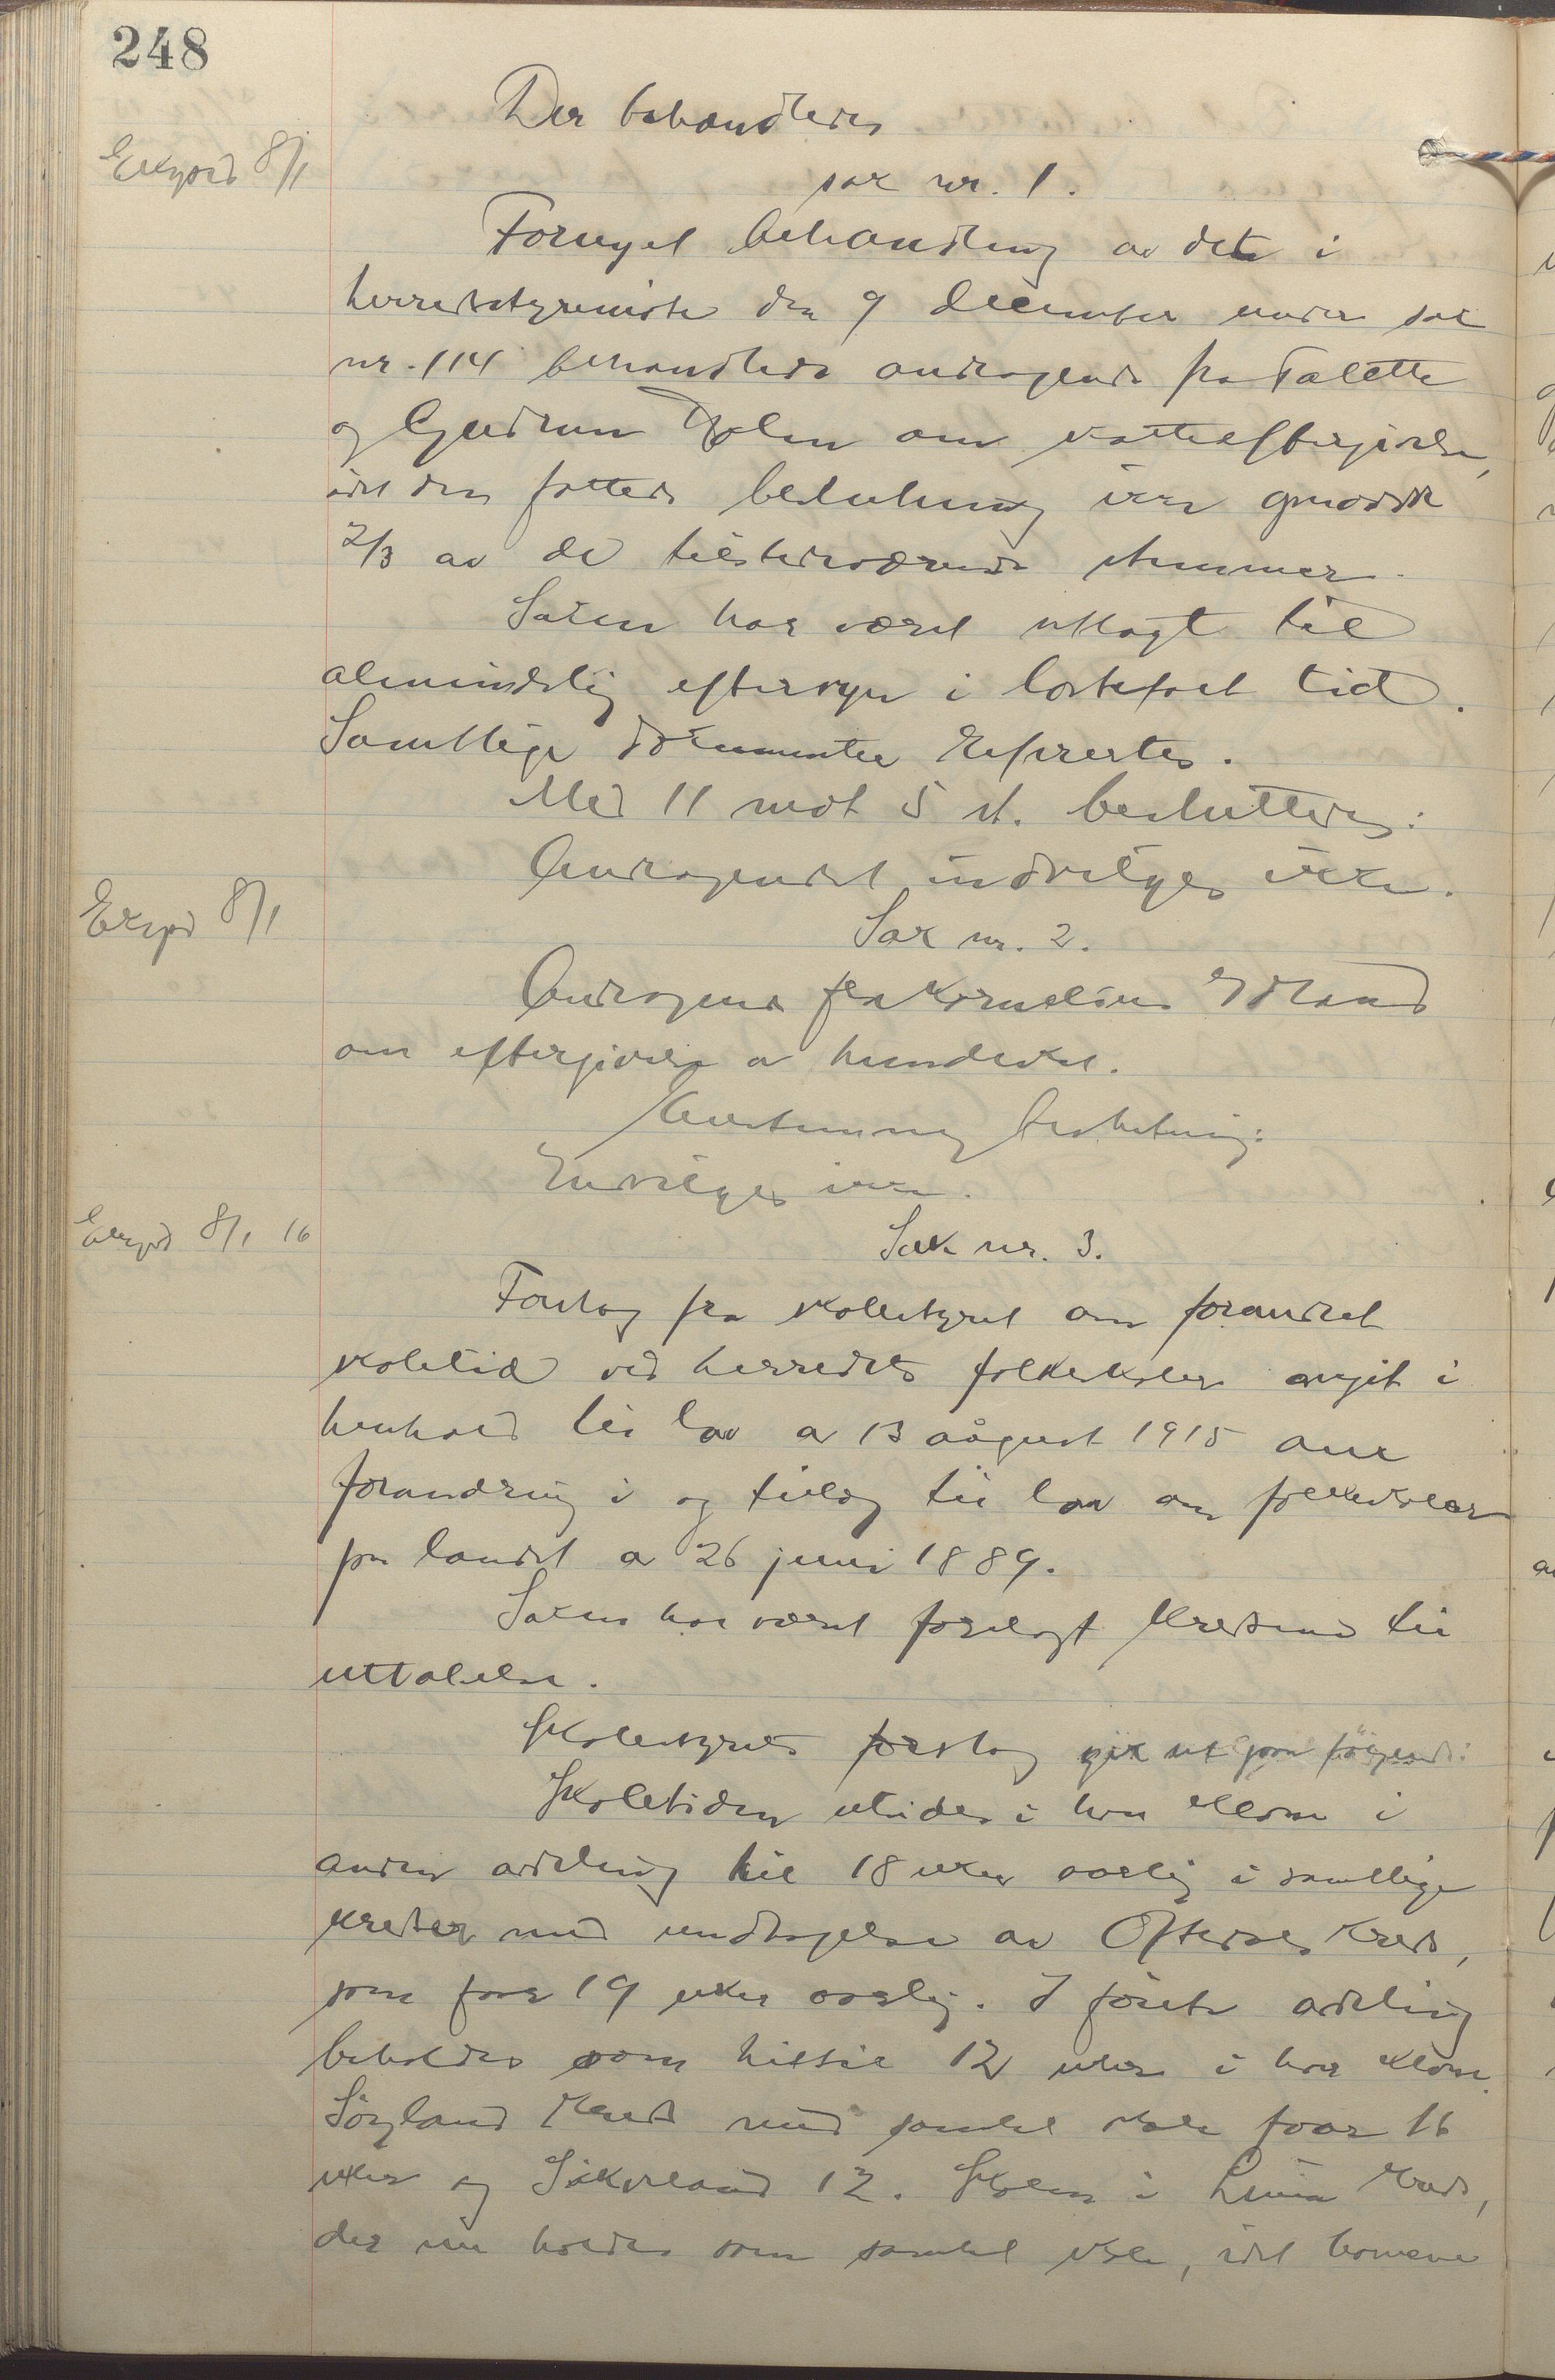 248
Der behandledes
Ekspd 8/1
sak nr. 1.
Fornyet behandling av det i
herredsstyremøte den 9 december under sak
nr. 114 behandlede andragende fra Talette
og Gudrun om skatteeftergivelse,
idet den fattede beslutning ikke
2/3 av de tilstedeværende stemmer.
Saken har været utlagt til
almindelig eftersyn i lovbefalt tid.
Samtlige dokumenter refertes.
Med 11 mot 5 st. besluttedes:
Andragendet indvilges ikke.
Ekspd 8/1
Sak nr. 2.
Andragende fra Kornelius
om eftergivelse av hundeskat.
Enstemmig beslutning:
Indvilges ikke.
Ekspd 8/1 16
Sak nr. 3.
Forslag fra skolestyret om forandret
skoletid ved herredets folkeskoler avgit i
henhold til lov av 13 august 1915 om
forandring i og tillæg til lov om folkeskolen
paa landet av 26 juni 1889.
Saken har været forelagt kredsene til
uttalelse.
Skolestyrets forslag gik ut paa følgende:
Skoletiden utvides i hver klasse i
anden avdeling til 18 uker aarlig i samtlige
kredser med undtagelse av Oftedals kreds,
som faar 19 uker aarlig. I første avdeling
beholdes som hittil 12 uker i hver klasse.
Søyland kreds med samlet skole faar 16
uker og Sikveland 12. Skolen i kreds,
der nu holdes som samlet skole, idet barnene